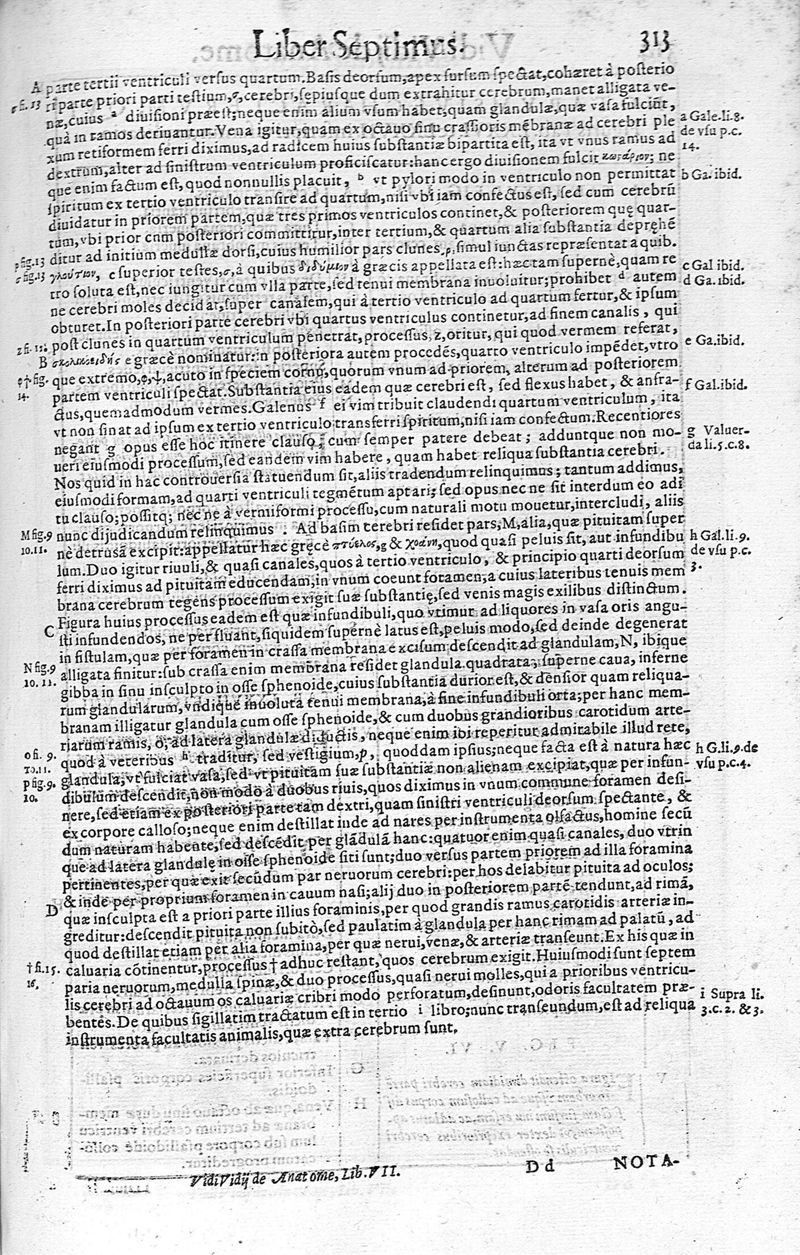 Liber Septimus. 313
A parte tertii ventriculi versus quartum. Basis deorsum, apex sursum spectat, cohæret à posterio
ri parte priori parti testium, σ, cerebri, sepiusque dum extrahitur cerebrum, manet alligata ve-
næ, cuius ᵃ diuisioni præest; neque enim alium vsum habet, quam glandulæ, quæ vasa fulciunt,
quà in ramos deriuantur. Vena igitur, quam ex octauo sinu crassioris mẽbranæ ad cerebri ple
xum retiformem ferri diximus, ad radicem huius substantiæ bipartita est, ita vt vnus ramus ad
dextrum, alter ad sinistrum ventriculum proficiscatur: hanc ergo diuisionem fulcit κωνάριον; ne
que enim factum est, quod nonnullis placuit, ᵇ vt pylori modo in ventriculo non permittat
spiritum ex tertio ventriculo transire ad quartum, nisi vbi iam confectus est, sed cum cerebrũ
diuidatur in priorem partem, quæ tres primos ventriculos continet, & posteriorem quę quar-
tum, vbi prior cum posteriori committitur, inter tertium, & quartum alia substantia deprẹhẽ
ditur ad initium medullæ dorsi, cuius humilior pars clunes, ρ, simul iunctas repræsentat a quib.
γλουτίων, c superior testes, σ, à quibus διδύμιον à græcis appellata est: hæc tam supernè, quam re
tro soluta est, nec iungitur cum vlla parte, sed tenui membrana inuoluitur; prohibet ᵈ autem
ne cerebri moles decidat, super canalem, qui à tertio ventriculo ad quartum fertur, & ipsum
obturet. In posteriori parte cerebri vbi quartus ventriculus continetur, ad finem canalis, qui
post clunes in quartum ventriculum penetrat, processus, z, oritur, qui quod vermem referat,
B σκωληκοειδὴς e græcè nominatur: in posteriora autem procedẽs, quarto ventriculo impẽdet, vtro
que extremo, φ, ψ, acuto in speciem comp, quorum vnum ad priorem, alterum ad posteriorem
partem ventriculi spectat. Substantia eius eadem quæ cerebri est, sed flexus habet, & anfra-
ctus, quemadmodum vermes. Galenus ᶠ ei vim tribuit claudendi quartum ventriculum, ita
vt non sinat ad ipsum ex tertio ventriculo transferri spiritum, nisi iam confectum. Recentiores
negant g opus esse hoc itinere clauso, cum semper patere debeat; adduntque non mo-
ueri eiusmodi processum, sed eandem vim habere, quam habet reliqua substantia cerebri.
Nos quid in hac controuersia statuendum sit, aliis tradendum relinquimus; tantum addimus,
eiusmodi formam, ad quarti ventriculi tegmẽtum aptari; sed opus nec ne sit interdum eo adi
tu clauso; possitq; nec ne à vermiformi processu, cum naturali motu mouetur, intercludi, aliis
nunc dijudicandum relinquimus. Ad basim cerebri residet pars, M, alia, quæ pituitam super
nè detrusã excipit: appellatur hæc gręcè πτύελος, g & χοάνη, quod quasi peluis sit, aut infundibu
lum. Duo igitur riuuli, & quasi canales, quos à tertio ventriculo, & principio quarti deorsum
ferri diximus ad pituitam educendam, in vnum coeunt foramen; a cuius lateribus tenuis mem
brana cerebrum tegens processum exigit suæ substantię, sed venis magis exilibus distinctum.
C Figura huius processus eadem est quæ infundibuli, quo vtimur ad liquores in vasa oris angu-
sti infundendos, ne perfluant, siquidem supernè latus est, peluis modo, sed deinde degenerat
in fistulam, quæ per foramen in crassa membrana excisum descendit ad glandulam, N, ibique
alligata finitur: sub crassa enim membrana residet glandula quadrata, superne caua, inferne
gibba in sinu insculpto in osse sphenoide, cuius substantia durior est, & dẽsior quam reliqua-
rum glandularum, vndique inuoluta tenui membrana, à fine infundibuli orta; per hanc mem-
branam illigatur glandula cum osse sphenoide, & cum duobus grandioribus carotidum arte-
riarum ramis, o, ad latera glandulæ diductis, neque enim ibi reperitur admirabile illud rete,
quod à veteribus ʰ traditur, sed vestigium, p, quoddam ipsius; neque facta est à natura hæc
glandula, vt fulciat vasa, sed vt pituitam suæ substantiæ non alienam excipiat, quæ per infun-
dibulum descendit, non modo à duobus riuis, quos diximus in vnum commune foramen desi-
nere, sed etiam ex posteriori parte tam dextri, quam sinistri ventriculi deorsum spectante, &
ex corpore calloso; neque enim destillat inde ad nares per instrumenta olfactus, homine secũ
dum naturam habente, sed descẽdit per glãdulã hanc: quatuor enim quasi canales, duo vtrin
que ad latera glandulę in osse sphenoide siti sunt; duo versus partem priorem ad illa foramina
pertinentes, per quæ exit secũdum par neruorum cerebri: per hos delabitur pituita ad oculos;
& inde per proprium foramen in cauum nasi; alij duo in posteriorem partẽ tendunt, ad rimã,
D quæ insculpta est a priori parte illius foraminis, per quod grandis ramus carotidis arteriæ in-
greditur: descendit pituita non subitò, sed paulatim à glandula per hanc rimam ad palatũ, ad
quod destillat etiam per alia foramina, per quæ nerui, venæ, & arteriæ transeunt. Ex his quæ in
caluaria cõtinentur, processus † adhuc restant, quos cerebrum exigit. Huiusmodi sunt septem
paria neruorum, medulla spinæ, & duo processus, quasi nerui molles, qui a prioribus ventricu-
lis cerebri ad octauum os caluariæ cribri modo perforatum, desinunt, odoris facultatem præ-
bentes. De quibus sigillatim tractatum est in tertio i libro; nunc transeundum, est ad reliqua
instrumenta facultatis animalis, quæ extra cerebrum sunt.
σ fi. 13
ρ fig. 13
σ fig. 13
z fi. 15.
φ † fig.
14.
M fig. 9
10. 11.
N fig. 9
10. 11.
o fi. 9.
10. 11.
p fig. 9.
10.
† fi. 15.
16.
a Gale. li. 8.
de vsu p. c.
14.
b Ga. ibid.
c Gal ibid.
d Ga. ibid.
e Ga. ibid.
f Gal. ibid.
g Valuer-
da li. 5. c. 8.
h Gal. li. 9.
de vsu p. c.
3.
h G. li. 9. de
vsu p. c. 4.
i Supra li.
3. c. 2. & 3.
Vidi Vidij de Anatome, Lib. VII. Dd NOTA-